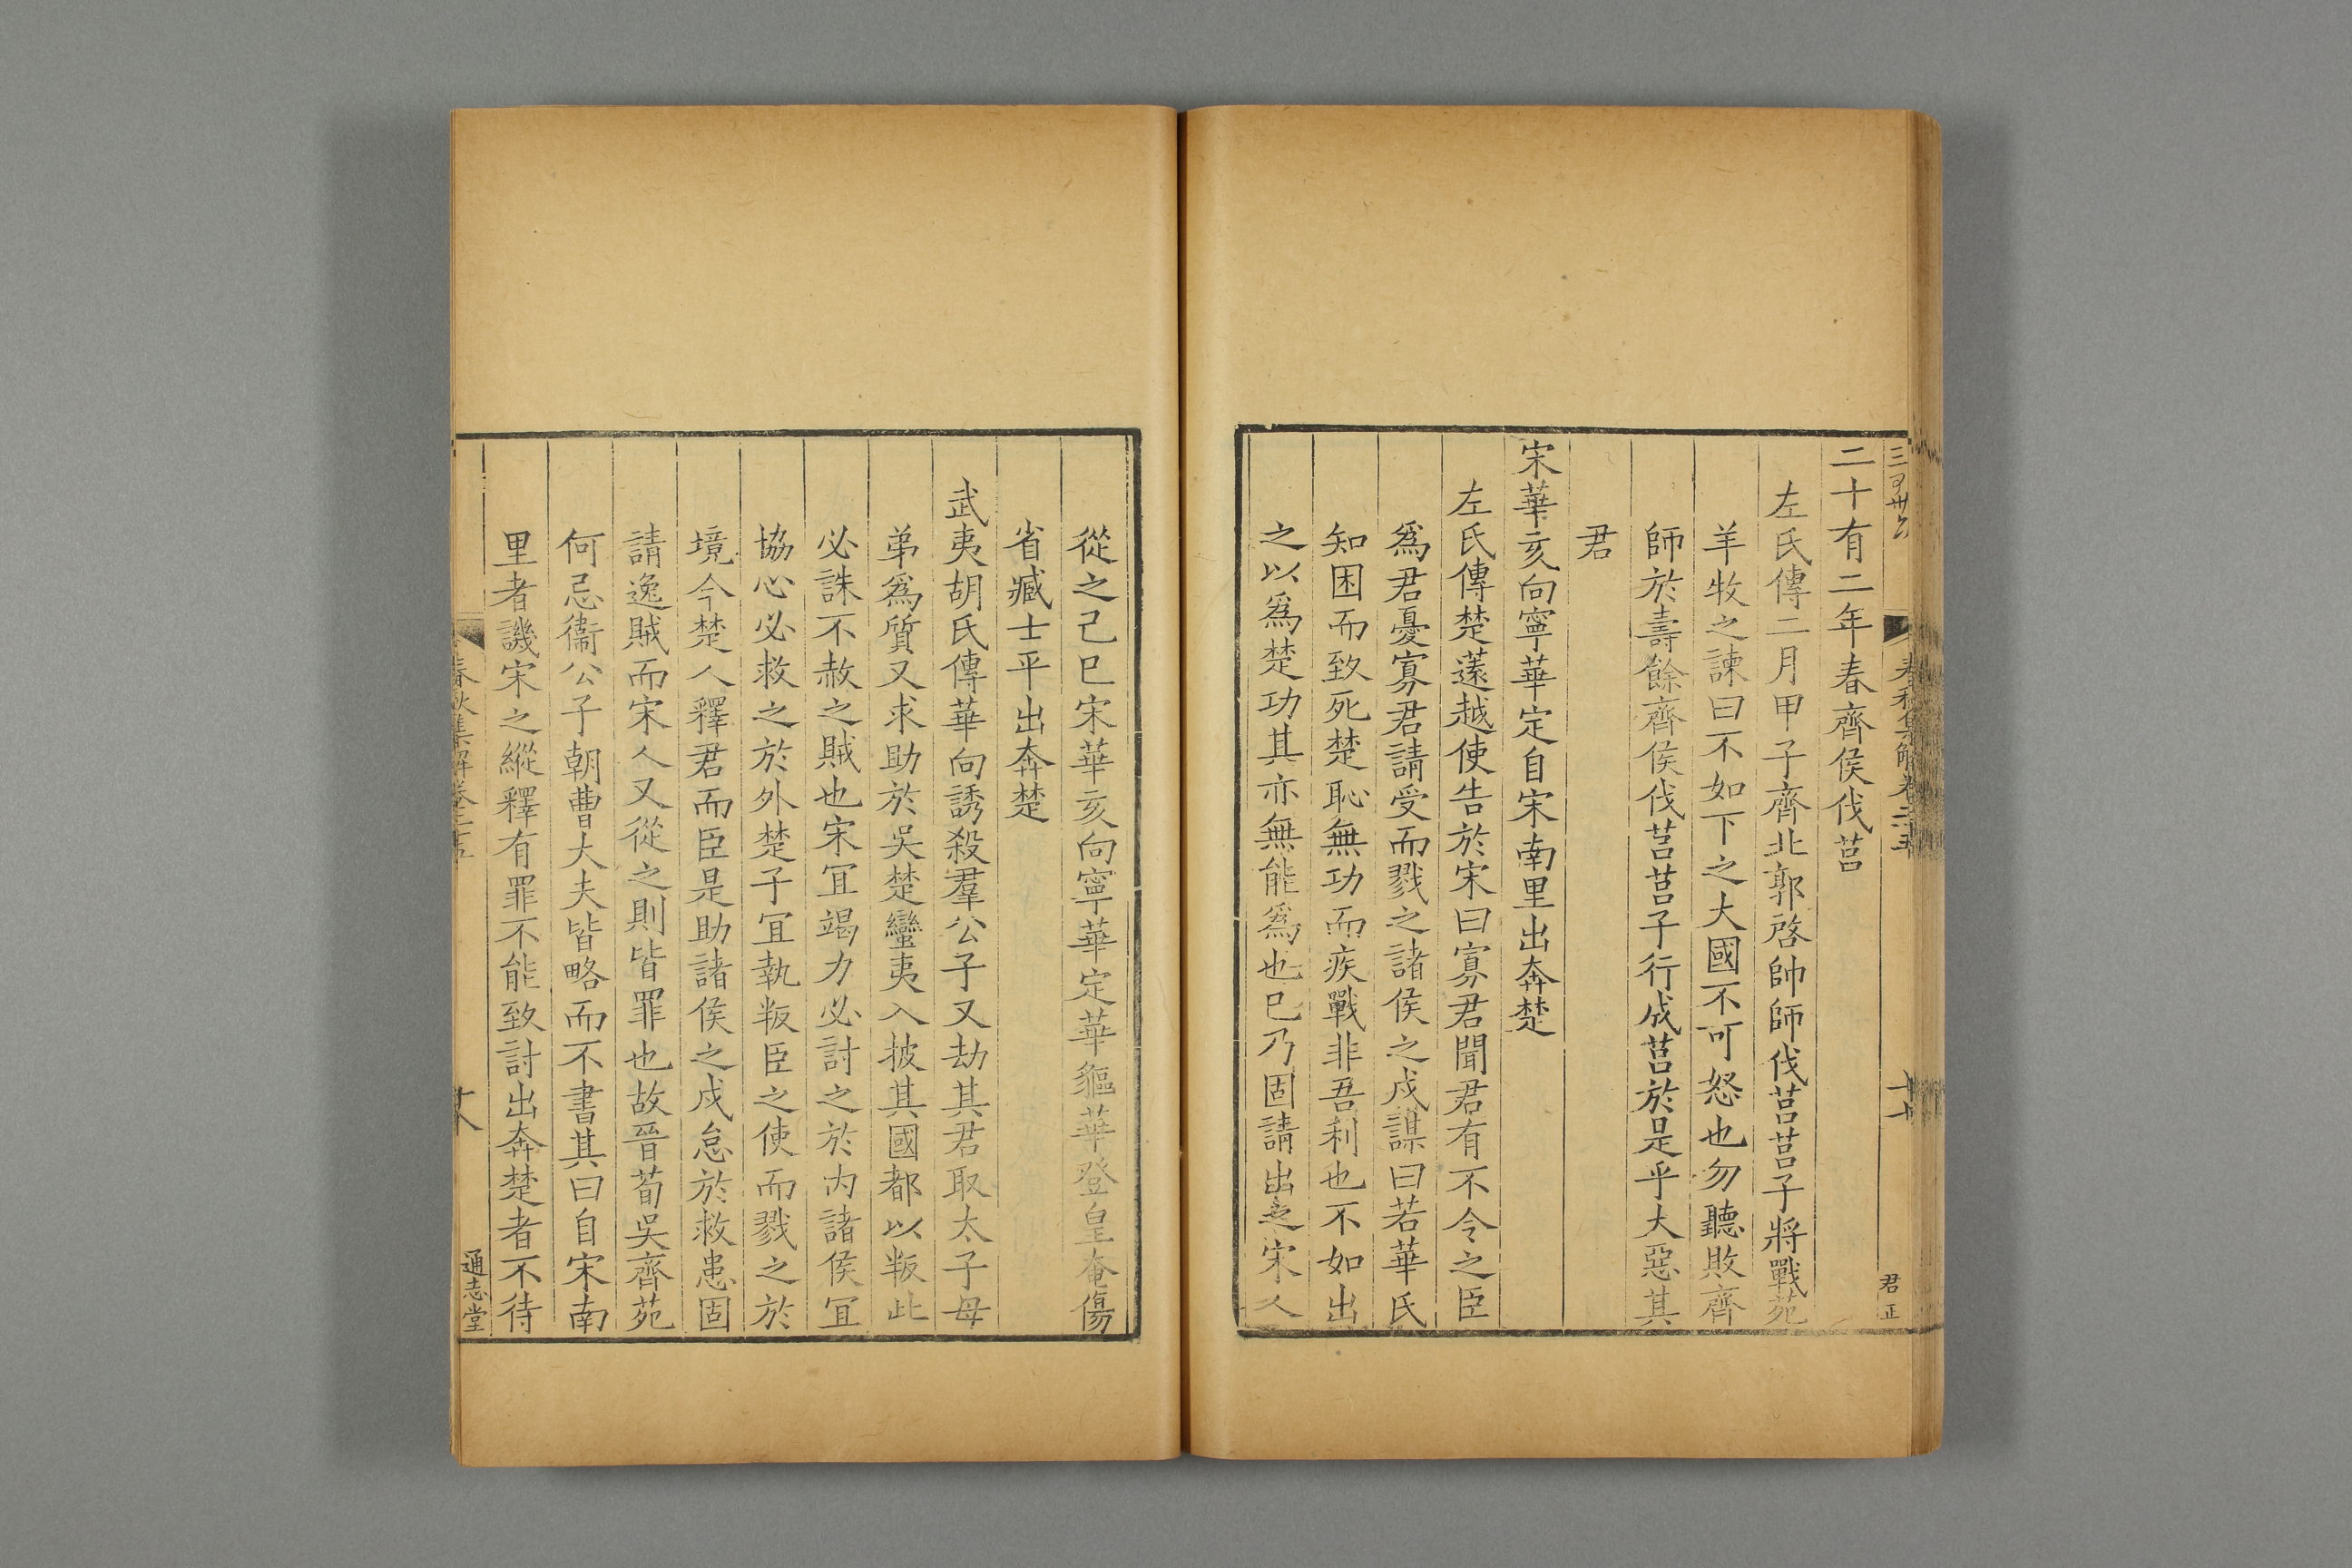 二十有二年春齊侯伐莒
左氏傳二月甲子齊北郭啓帥師伐莒莒子將戰苑
羊牧之諫曰不如下之大國不可怒也勿聽敗齊
師於壽餘齊侯伐莒莒子行成莒於是乎大惡其
君
宋華亥向寧華定自宋南里出奔楚
左氏傳楚薳越使告於宋曰寡君聞君有不令之臣
爲君憂寡君請受而戮之諸侯之戍謀曰若華氏
知困而致死楚恥無功而疾戰非吾利也不如出
之以爲楚功其亦無能爲也巳乃固請出之宋人
從之己巳宋華亥向寧華定華貙華登皇奄傷
省臧士平出奔楚
武夷胡氏傳華向誘殺羣公子又劫其君取太子母
弟爲質又求助於吳楚蠻夷入披其國都以叛此
必誅不赦之賊也宋宜竭力必討之於內諸侯宜
協心必救之於外楚子宜執叛臣之使而戮之於
境今楚人釋君而臣是助諸侯之戍怠於救患固
請逸賊而宋人又從之則皆罪也故晉荀吳齊苑
何忌衞公子朝曹大夫皆略而不書其曰自宋南
里者譏宋之縱釋有罪不能致討出奔楚者不待
春秋集解卷二十五
通志堂
君正